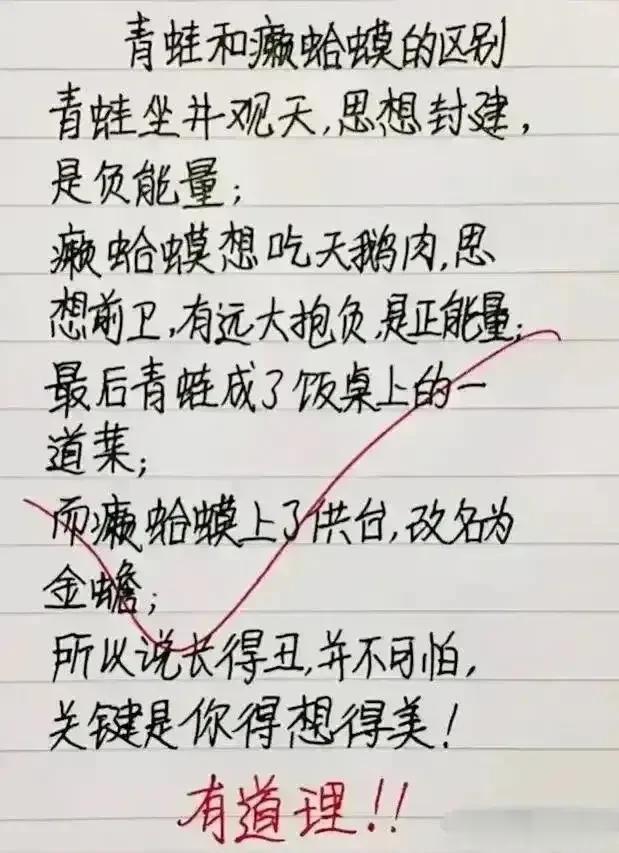 青蛙和癞蛤蟆的区别
青蛙坐井观天,思想封建,
是负能量;
癞蛤蟆想吃天鹅肉,思
想前卫,有远大抱负,是正能量;
最后青蛙成了饭桌上的一
道菜;
而癞蛤蟆上了供台,改名为
金蟾;
所以说长得丑,并不可怕,
关键是你得想得美!
有道理!!